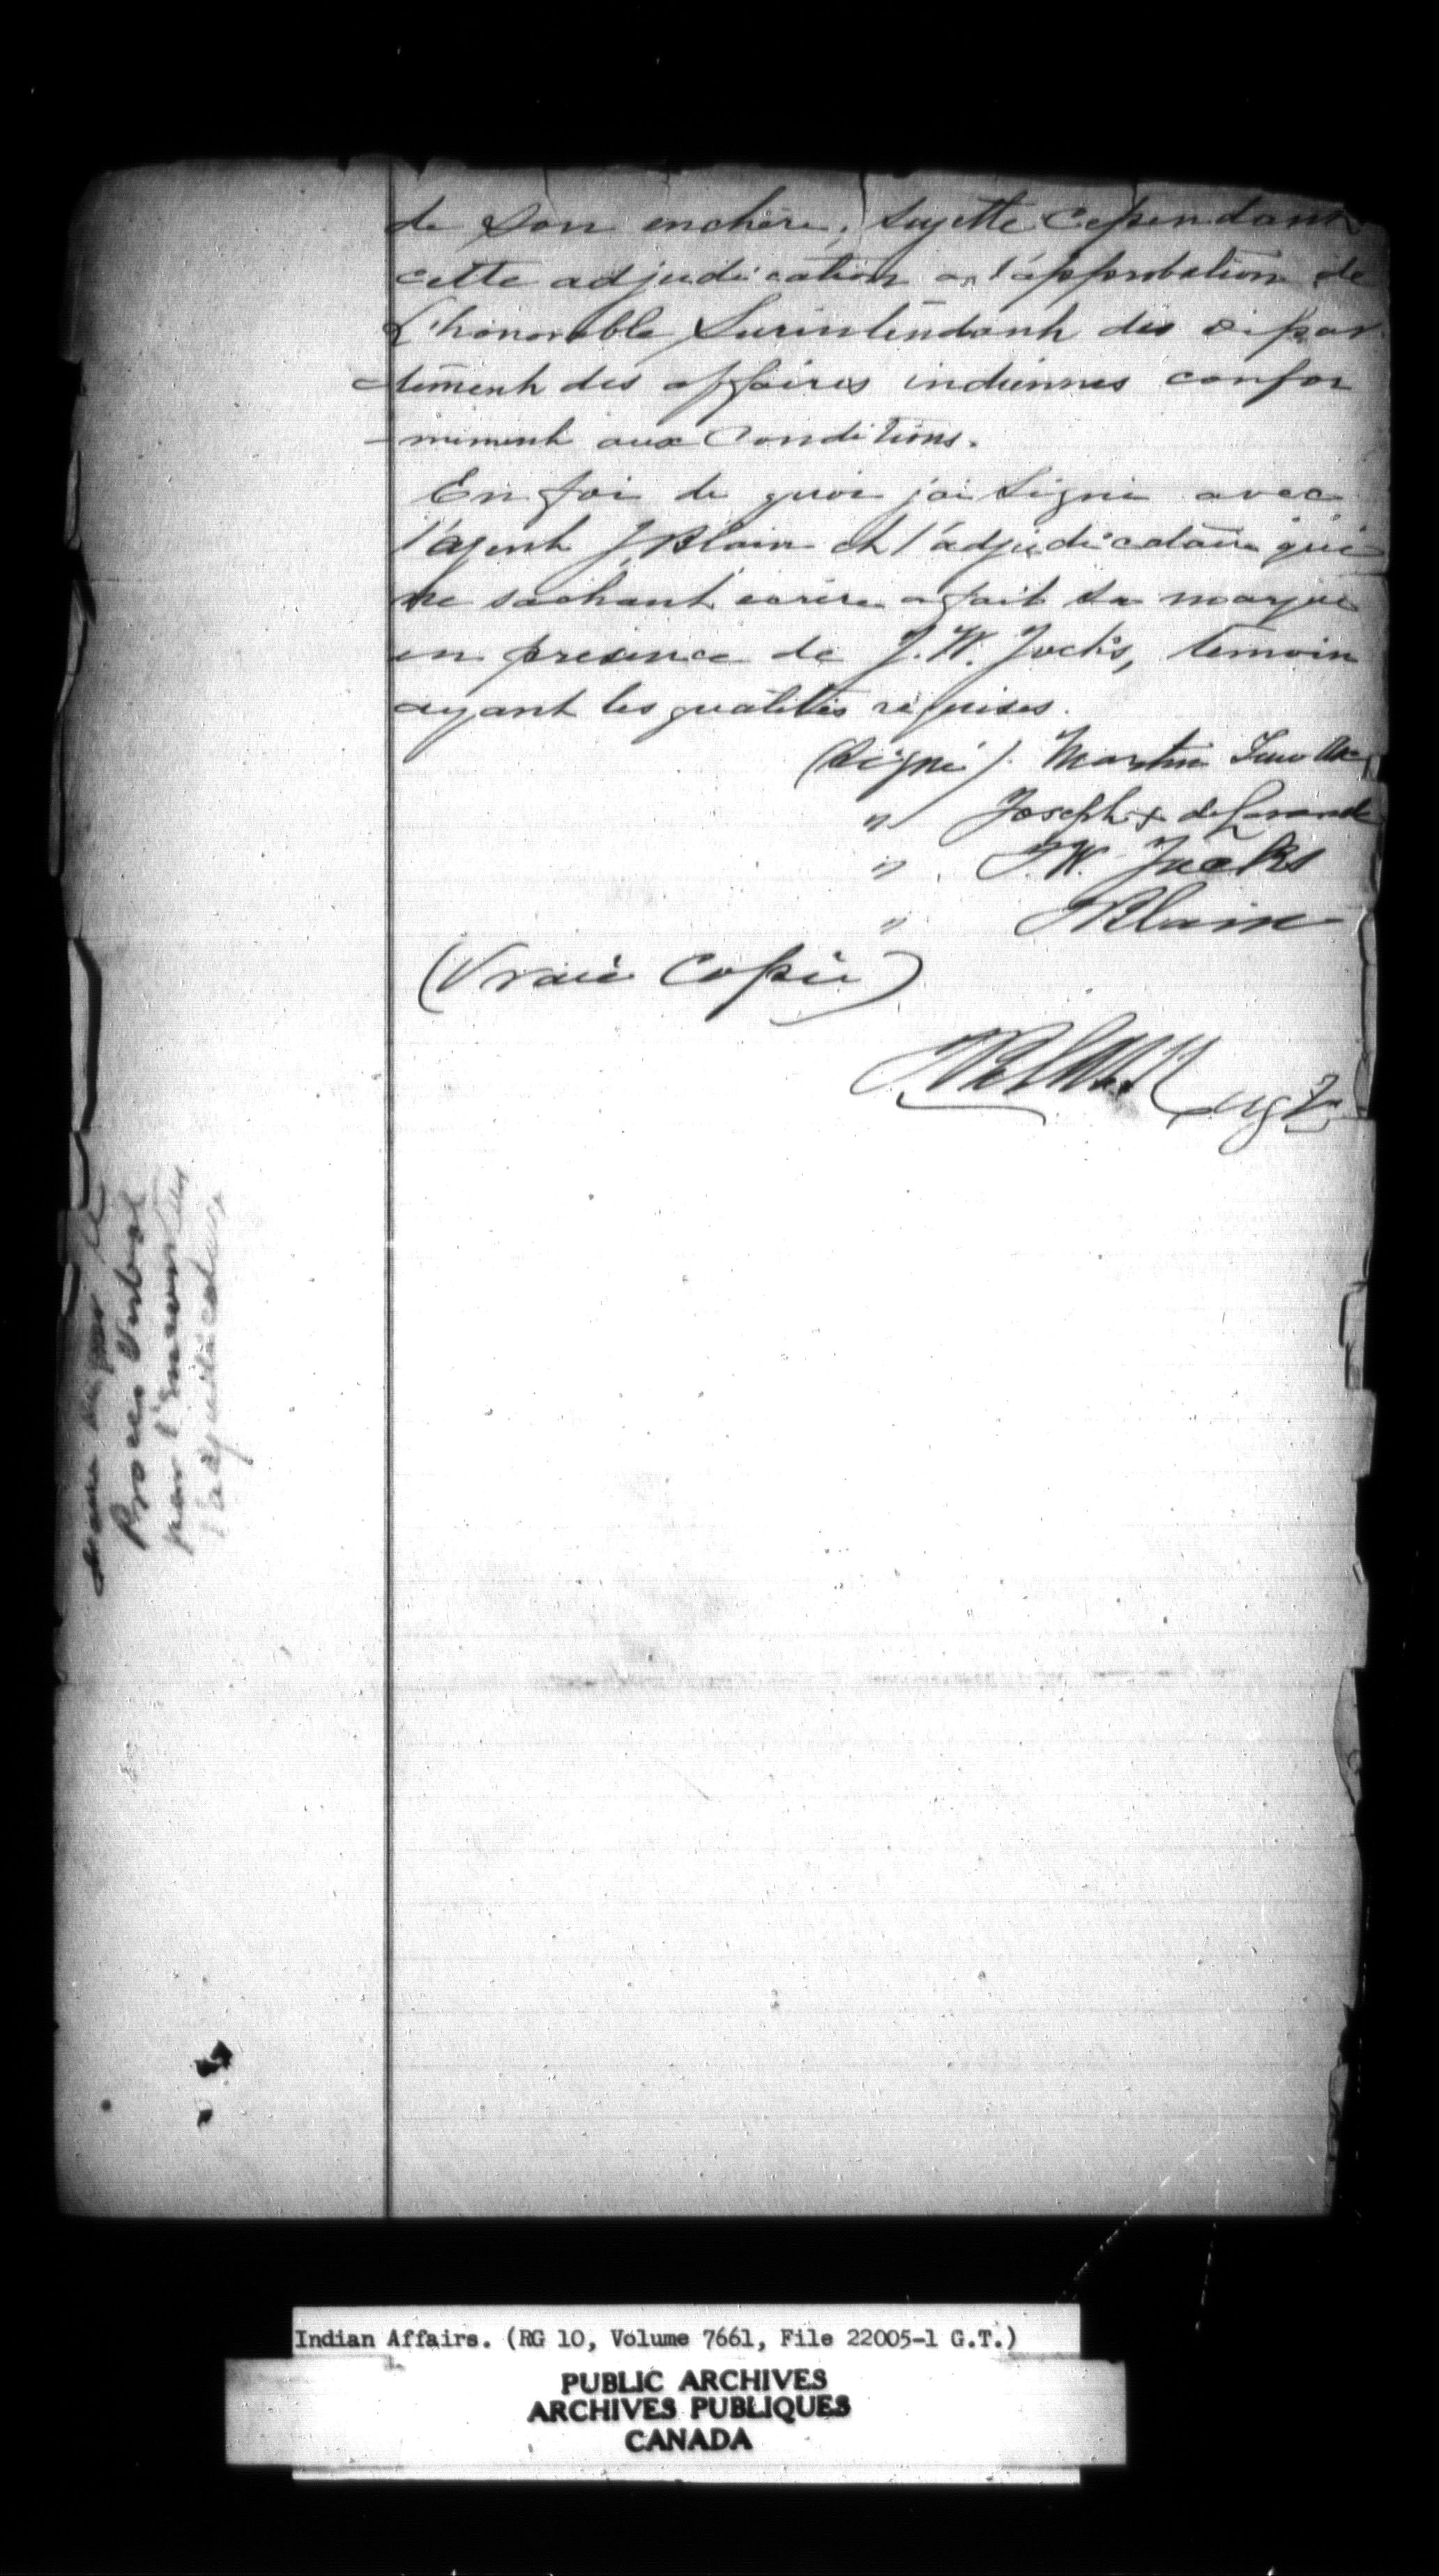 de son enchère, sujette cependant
cette adjudication a l'approbation de
L'honorable Surintendant des dépar
tement des affaires indiennes confor
-mement aux Conditions.
En foi de quoi j'ai signé avec
l'agent J Blain et l'adjudicataire qui
ne sachant écrire a fait sa marque
en presence de J. W. Jocks, temoin
ayant les qualités réquises.
(Signé). Martin
" Joseph x de
" J. W. Jocks
" J Blain
(Vraie Copie)
Agt
Procès Verbal
par l'
l'adjudicataire
Indian Affairs. (RG 10, Volume 7661, File 22005-1 G.T.)
PUBLIC ARCHIVES
ARCHIVES PUBLIQUES
CANADA